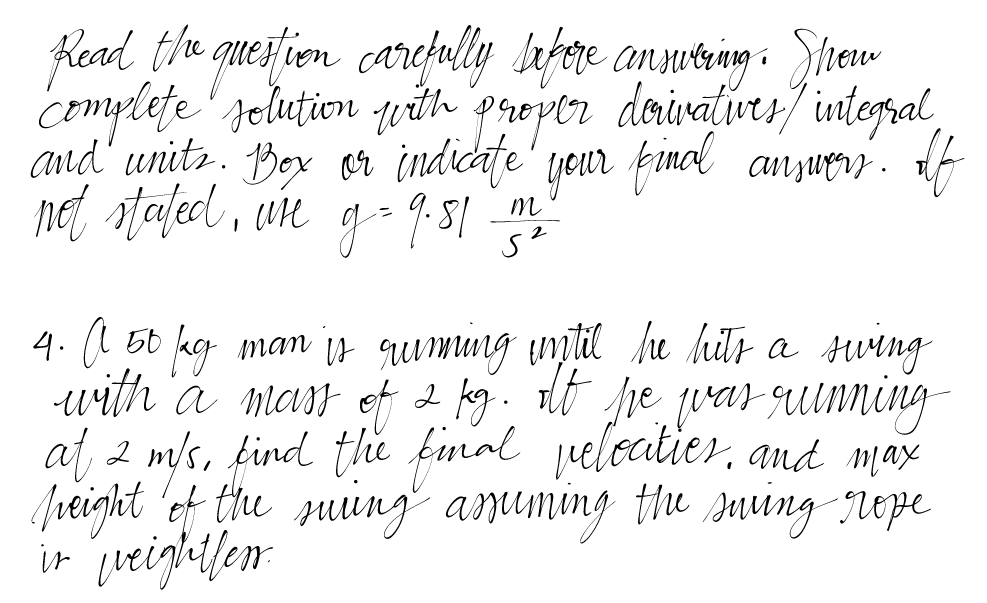 Read the question carefully before answering. Show
complete solution with proper derivatives/integral
and units. Box or indicate your final answers. If
not stated, use g = 9.81 m/s²
4. A 50 kg man is running until he hits a swing
with a mass of 2 kg. If he was running
at 2 m/s, find the final velocities, and max
height of the swing assuming the swing rope
is weightless.